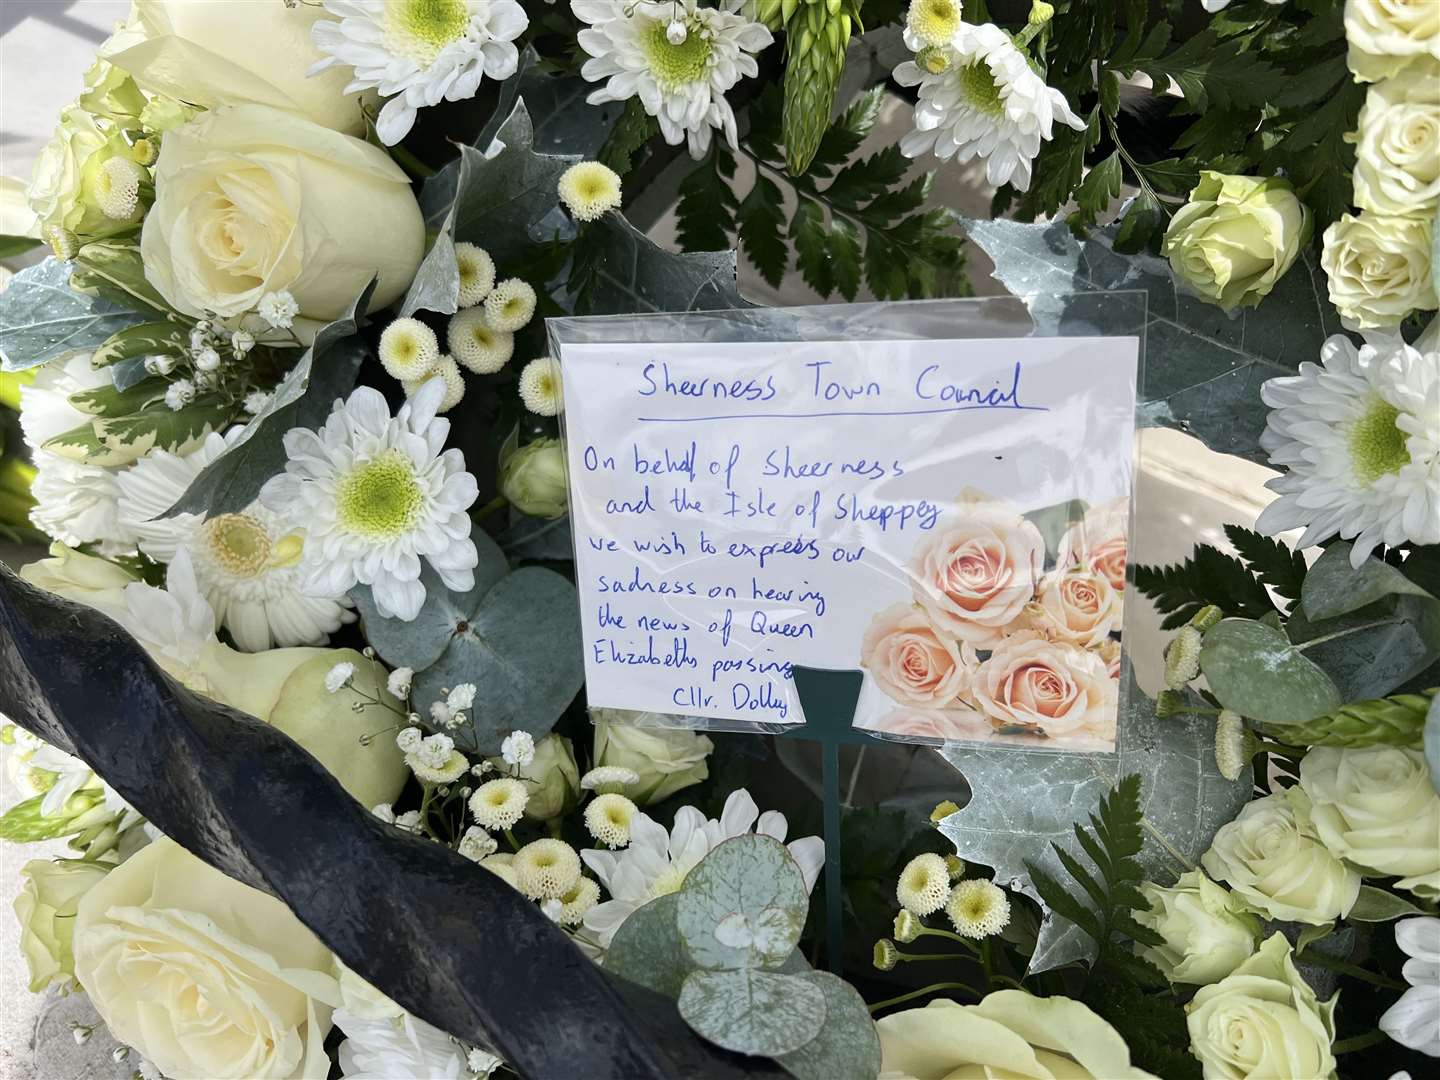 Sheerness Town Council
On behalf of Sheerness
and the Isle of Sheppey
we wish to express our
sadness on hearing
the news of Queen
Elizabeths passing
Cllr. Dolley